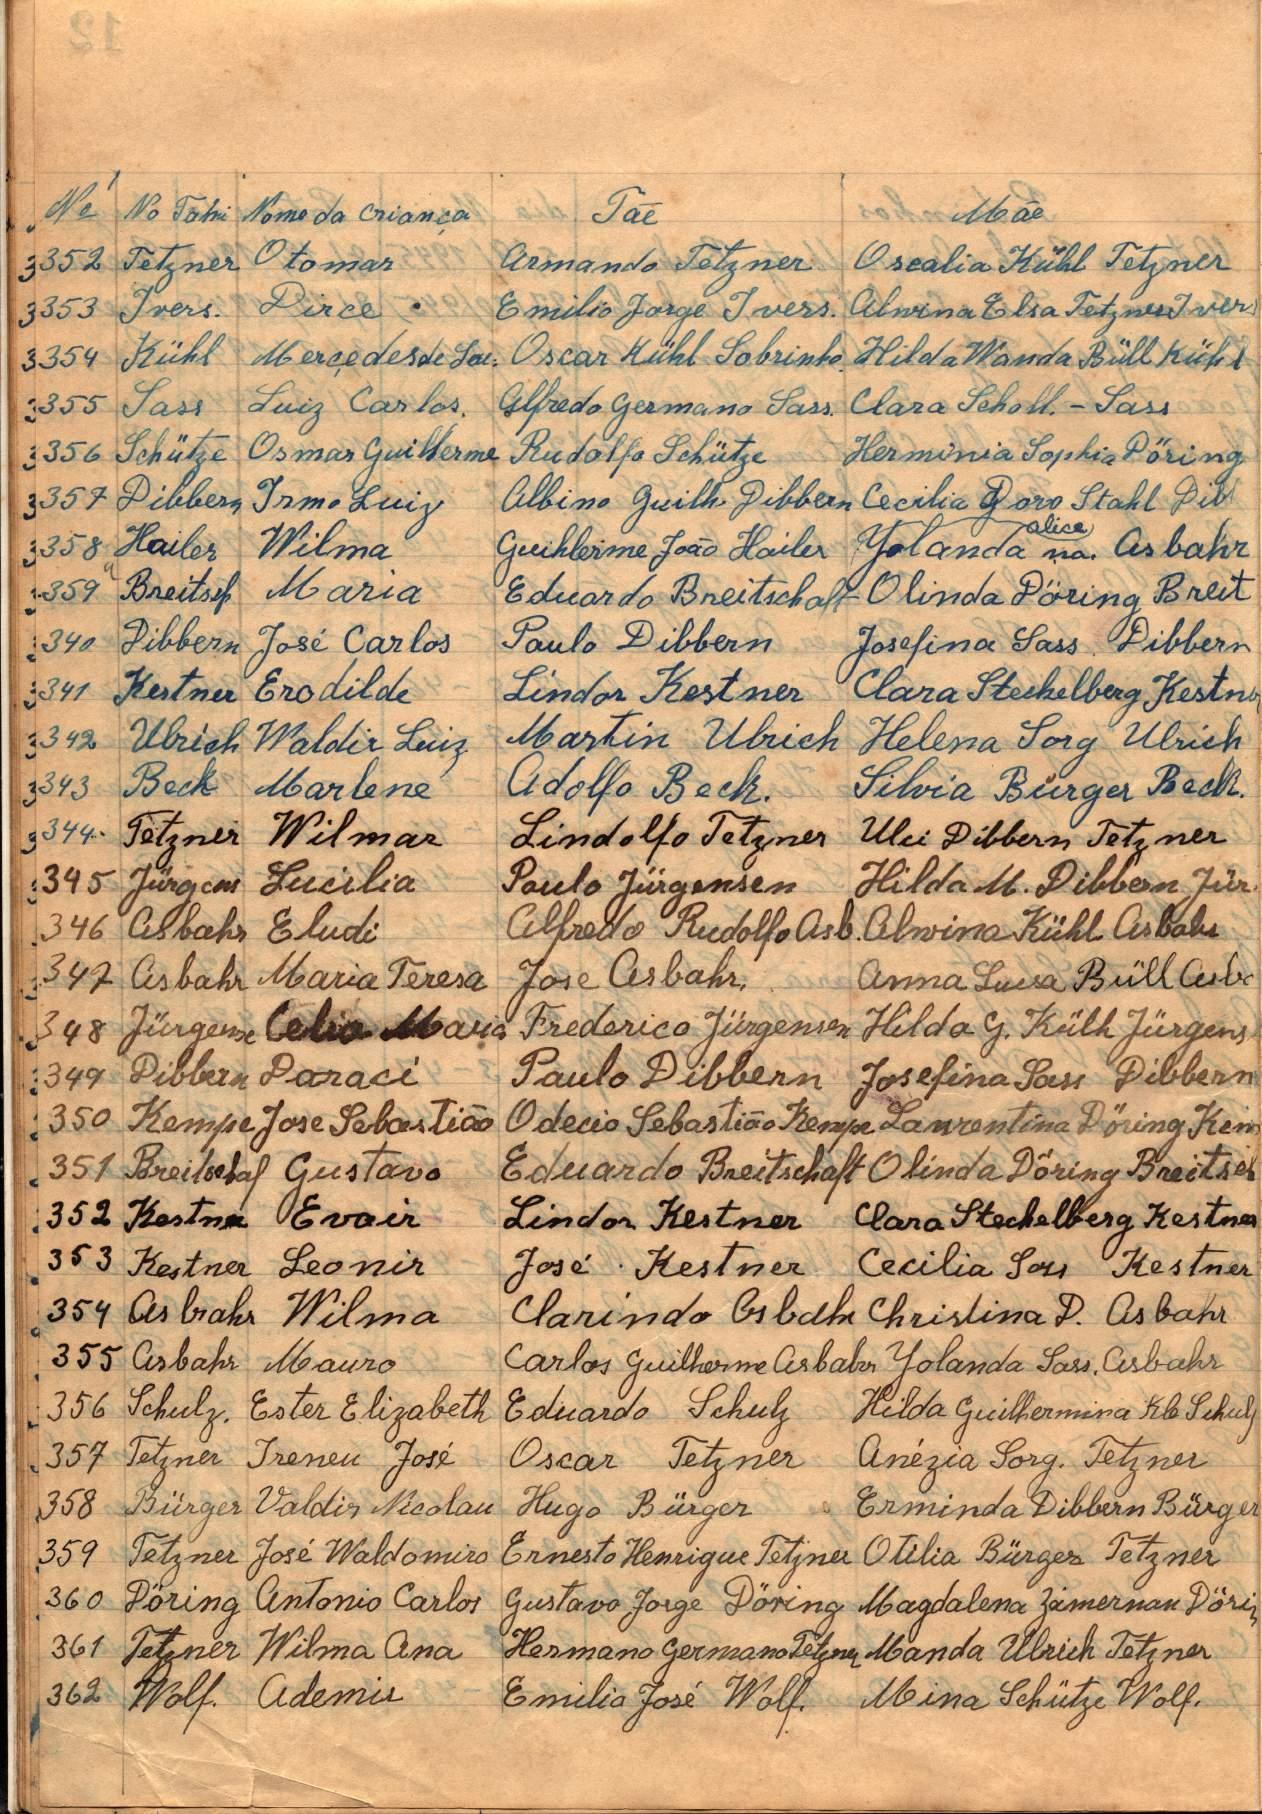 Nº No Tahi Nome da criança Pãe Mãe
352 Tetzner Otomar Armando Tetzner Oscalia Kühl Tetzner
353 Ivers. Dirce Emilio Jorge Ivers. Alwina Elsa Tetzner Ivers
354 Kühl Mercedes de Lou. Oscar Kühl Sobrinho Hilda Wanda Büll Kühl
355 Sass Luiz Carlos. Alfredo Germano Sass. Clara Scholl. - Sass
356 Schütze Osmar Guilherme Rudolfo Schütze Herminia Sophia Döring
357 Dibbern Irmo Luiz Albino Guilh. Dibbern Cecilia Doro Stahl Dib
358 Hailer Wilma Guihlerime João Hailer Yolanda alice na. Asbahr
359 Breitsch Maria Eduardo Breitschaft - Olinda Döring Breit
340 Dibbern José Carlos Paulo Dibbern Josefina Sass Dibbern
341 Kestner Erodilde Lindor Kestner Clara Stechelberg Kestner
342 Ulrich Waldir Luiz Martin Ulrich Helena Sorg Ulrich
343 Beck Marlene Adolfo Beck. Silvia Bürger Beck.
344. Tetzner Wilmar Lindolfo Tetzner Ulii Dibbern Tetzner
345 Jürgens Lucilia Paulo Jürgensen Hilda M. Dibbern Jür.
346 Asbahr Eludi Alfredo Rudolfo Asb. Alwina Kühl Asbahr
347 Asbahr Maria Teresa Jose Asbahr. Anna Luisa Büll Asba
348 Jürgense Celia Maria Frederico Jürgensen Hilda G. Külh Jürgens
349 Dibbern Daraci Paulo Dibbern Josefina Sass Dibbern
350 Kempe Jose Sebastião Odecio Sebastião Kempe Lawrentina Döring Kem
351 Breitschaf Gustavo Eduardo Breitschaft Olinda Döring Breitsch
352 Kestner Evair Lindor Kestner Clara Stechelberg Kestner
353 Kestner Leonir José Kestner Cecilia Sass Kestner
354 Asbrahr Wilma Clarindo Asbahr Christina D. Asbahr
355 Asbahr Mauro Carlos Guilherme Asbahr Yolanda Sass. Asbahr
356 Schulz. Ester Elizabeth Eduardo Schulz Hilda Guilhermina Klb Schulz
357 Tetzner Ireneu José Oscar Tetzner Anézia Sorg. Tetzner
358 Bürger Valdir Nicolau Hugo Bürger Erminda Dibbern Bürger
359 Tetzner José Waldomiro Ernesto Henrique Tetzner Otilia Bürger Tetzner
360 Döring Antonio Carlos Gustavo Jorge Döring Magdalena Zimernan Döring
361 Tetzner Wilma Ana Hermano Germano Tetzner Manda Ulrich Tetzner
362 Wolf. Ademir Emilia José Wolf. Mina Schütze Wolf.